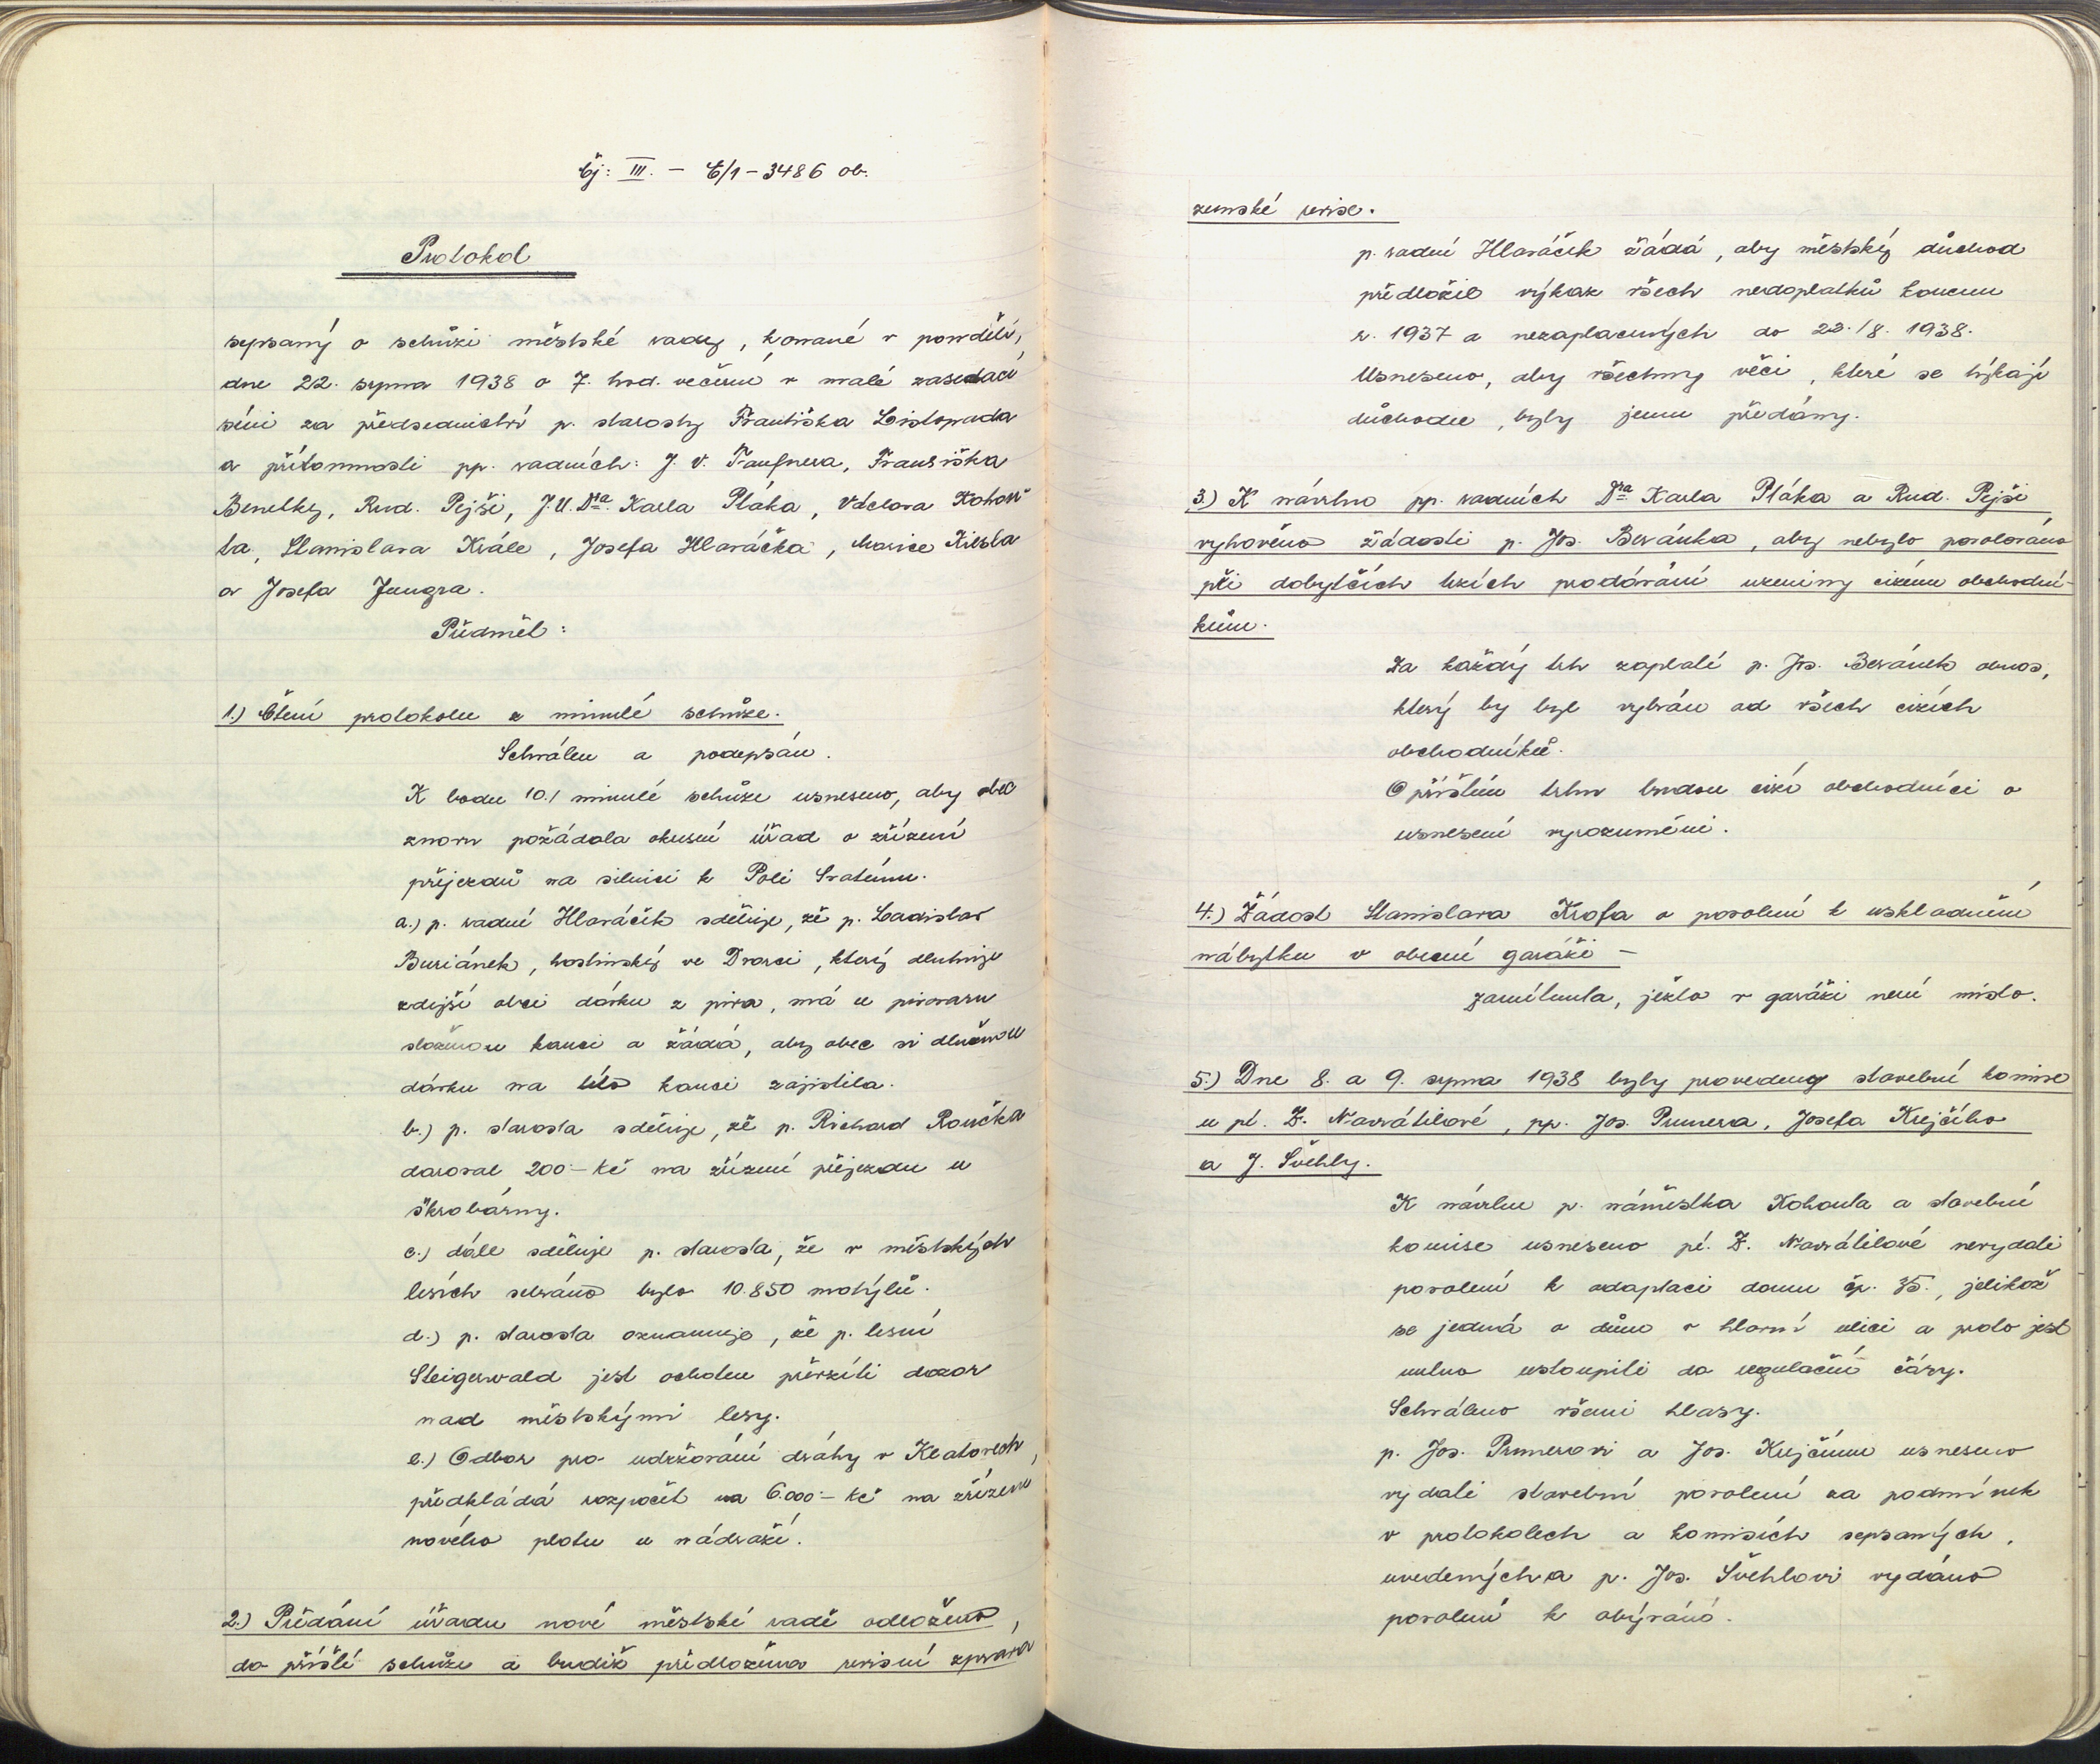 čj: III. – E/1 – 3486 ob.
Protokol
sepsaný o schůzi městské rady, konané v pondělí,
dne 22. srpna 1938 o 7. hod. večerní v malé zasedací
síni za předsednictví p. starosty Františka Listopada
a přítomnosti pp. radních: J. V. Taufnera, Františka
Benetky, Rud. Pejši, J.U.Dra. Karla Ptáka, Václava Kohou-
ta, Stanislava Krále, Josefa Hlaváčka, Morice Kiesla
a Josefa Jungra.
Předmět:
1.) Čtení protokolu z minulé schůze.
Schválen a podepsán.
K bodu 10./ minulé schůze usneseno, aby obec
znovu požádala okresní úřad o zřízení
příjezdů na silnici k Poli Svatému.
a.) p. radní Hlaváček sděluje, že p. Ladislav
Buriánek, hostinský ve Dvorci, který dluhuje
zdejší obci dávku z piva, má u pivovaru
složenou kauci a žádá, aby obec si dlužnou
dávku na této kauci zajistila.
b.) p. starosta sděluje, že p. Richard Roučka
daroval 200·– Kč na zřízení příjezdu u
škrobárny.
c.) dále sděluje p. starosta, že v městských
lesích sebráno bylo 10.850 motýlů.
d.) p. starosta oznamuje, že p. lesní
Steigerwald jest ochoten převzíti dozor
nad městskými lesy.
e.) Odbor pro udržování dráhy v Klatovech,
předkládá rozpočet na 6.000·– Kč na zřízení
nového plotu u nádraží.
2.) Předání úřadu nové městské radě odloženo,
do příští schůze a budiž předložena revisní zpráva
zemské revise.
p. radní Hlaváček žádá, aby městský důchod
předložil výkaz všech nedoplatků koncem
r. 1937 a nezaplacených do 22./8. 1938.
Usneseno, aby všechny věci, které se týkají
důchodu, byly jemu předány.
3.) K návrhu pp. radních Dra Karla Ptáka a Rud. Pejši
vyhověno žádosti p. Jos. Beránka, aby nebylo povolováno
při dobytčích trzích prodávání uzeniny cizím obchodní-
kům.
Za každý trh zaplatí p. Jos. Beránek obnos,
který by byl vybrán od všech cizích
obchodníků.
O příštím trhu budou cizí obchodníci o
usnesení vyrozuměni.
4.) Žádost Stanislava Krofa o povolení k uskladnění
nábytku v obecní garáži –
zamítnuta, ježto v garáži není místo.
5.) Dne 8. a 9. srpna 1938 byly provedeny stavební komise
u pí. Z. Navrátilové, pp. Jos. Prunera, Josefa Krejčího
a J. Švehly.
K návrhu p. náměstka Kohouta a stavební
komise usneseno pí. Z. Navrátilové nevydati
povolení k adaptaci domu čp. 35., jelikož
se jedná o dům v hlavní ulici a proto jest
nutno ustoupiti do regulační čáry.
Schváleno všemi hlasy.
p. Jos. Prunerovi a Jos. Krejčímu usneseno
vydati stavební povolení za podmínek
v protokolech a komisích sepsaných,
uvedených a p. Jos. Švehlovi vydáno
povolení k obývání.